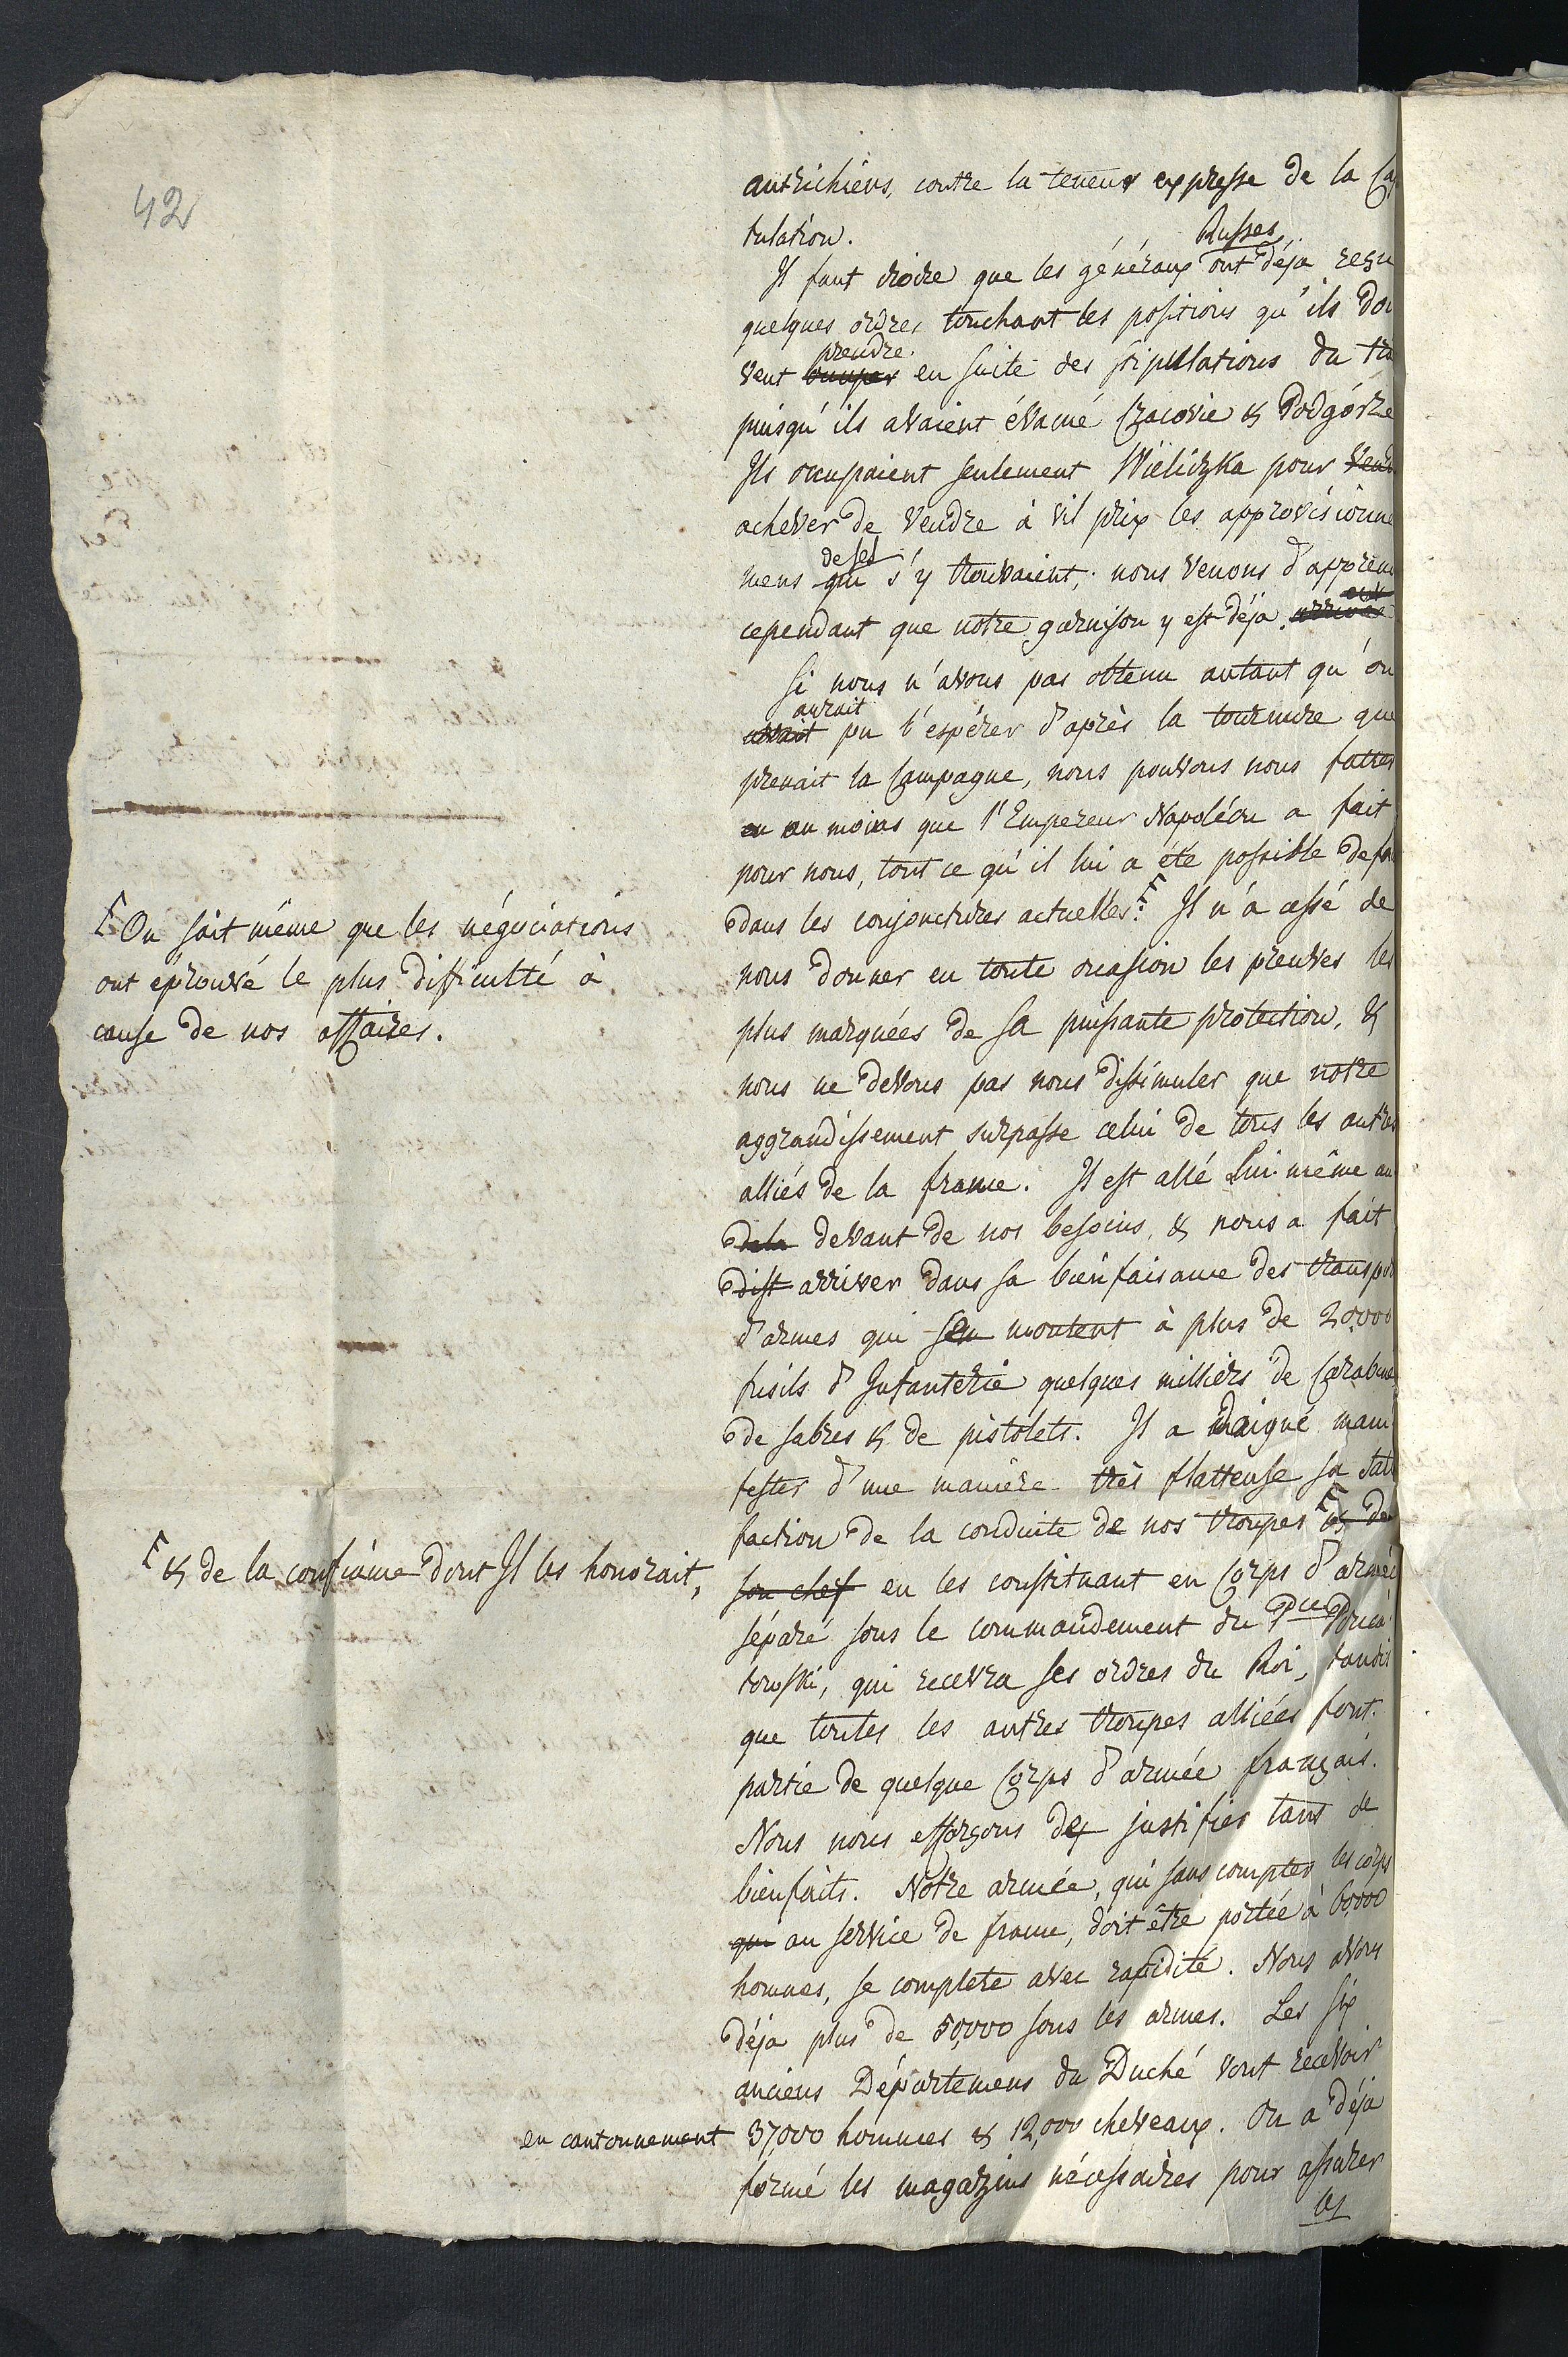 42
autrichiens, contre la teneur expresse de la Ca
tulation.
Russes
Il faut croire que les généraux ont déja reçu
quelques ordres touchant les positions qu'ils doi
prendre
vent occuper en suite des stipulations du tra
puisqu'ils avaient évacué Cracovie & Podgórze
Ils occupaient seulement Wieliczka pour vend
achever de vendre à vil prix les approvisionne
de sel
mens qui s'y trouvaient; nous venons d'appren
cependant que notre garnison y est déja. arrivée
Si nous n'avons pas obtenu autant qu'on
aurait
avait pu l'espérer d'après la tournure que
prenait la Campagne, nous pouvons nous flatter
au moins que l'Empereur Napoléon a fait
pour nous, tout ce qu'il lui a été possible de fai
dans les conjonctures actuelles. Il n'a cessé de
On sait même que les négociations
ont éprouvé le plus difficulté à
cause de nos affaires.
nous donner en toute occasion les preuves les
plus marquées de sa puissante protection, &
nous ne devons pas nous dissimuler que notre
aggrandissement surpasse celui de tous les autres
alliés de la france. Il est allé Lui-même au
dela devant de nos besoins, & nous a fait
dist arriver dans sa bienfaisance des transpor
d'armes qui sen montent à plus de 20,000
fusils d'Infanterie quelques milliers de Carabine
de sabres & de pistolets. Il a daigné mani
fester d'une manière très flatteuse sa satis
faction de la conduite de nos troupes & de
& de la confiance dont Il les honorait,
son chef en les constituant en Corps d'armée
séparé sous le commandement du Pce Ponia
towski, qui recevra ses ordres du Roi, tandis
que toutes les autres troupes alliées font
partie de quelque Corps d'armée français.
Nous nous efforçons de justifier tans de
bienfaits. Notre armée, qui sans compter les corps
qui au service de france, doit être portée à 60,000
hommes, se complete avec rapidité. Nous avons
déja plus de 50,000 sous les armes. Les six
anciens Départemens du Duché vont recevoir
en cantonnement 37,000 hommes & 12,000 cheveaux. On a déja
formé les magazins nécessaires pour assurer
les